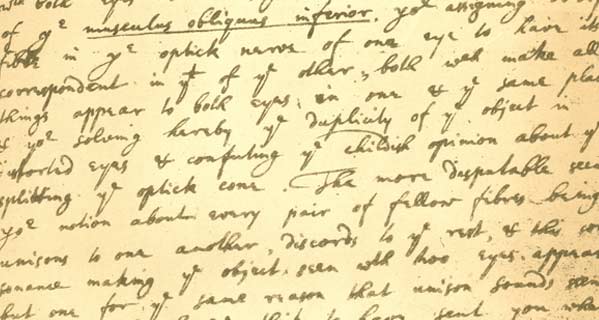 both eyes
of yᵉ musculus obliquus inferior. yoʳ assigning
fibre in yᵉ optick nerve of one eye to have its
correspondent in yᵗ of yᵉ other, both wᶜʰ make all
things appear to both eyes in one & yᵉ same place
& yoʳ solving hereby yᵉ duplicity of yᵉ object in
distorted eyes & confuting yᵉ childish opinion about yᵉ
splitting yᵉ optick cone. The more disputable seem
yoʳ notion about every pair of fellow fibres being
unisons to one another, discords to yᵉ rest, & this con
sonance making yᵉ object seen wᵗʰ two eyes appear
but one for yᵉ same reason that unison sounds seem
to have sent you wha